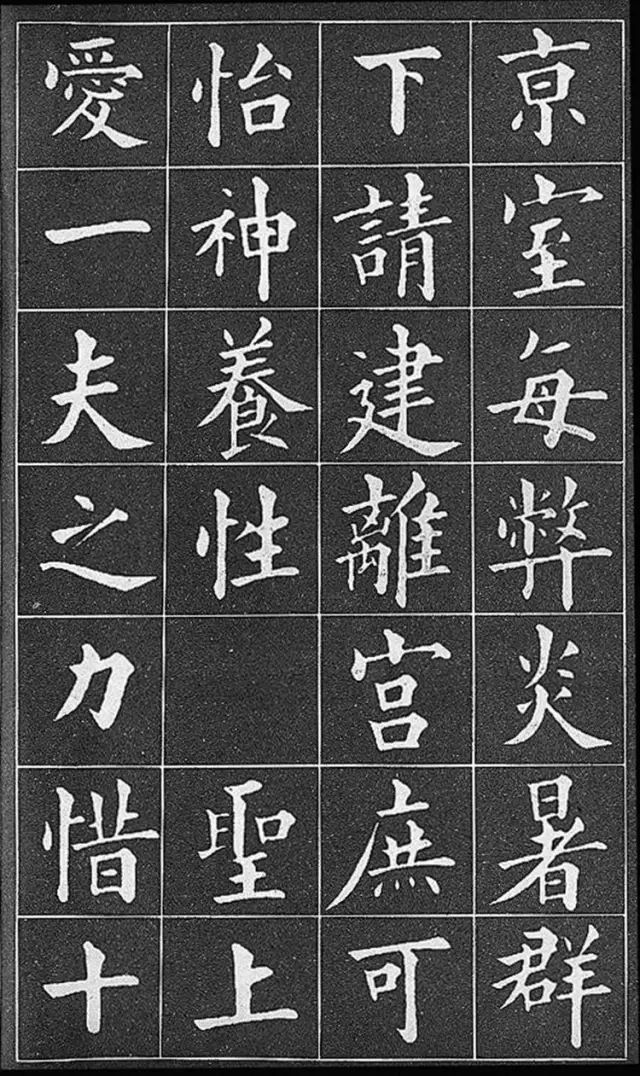 京室每弊炎暑群
下請建離宫庶可
怡神養性 聖上
愛一夫之力惜十